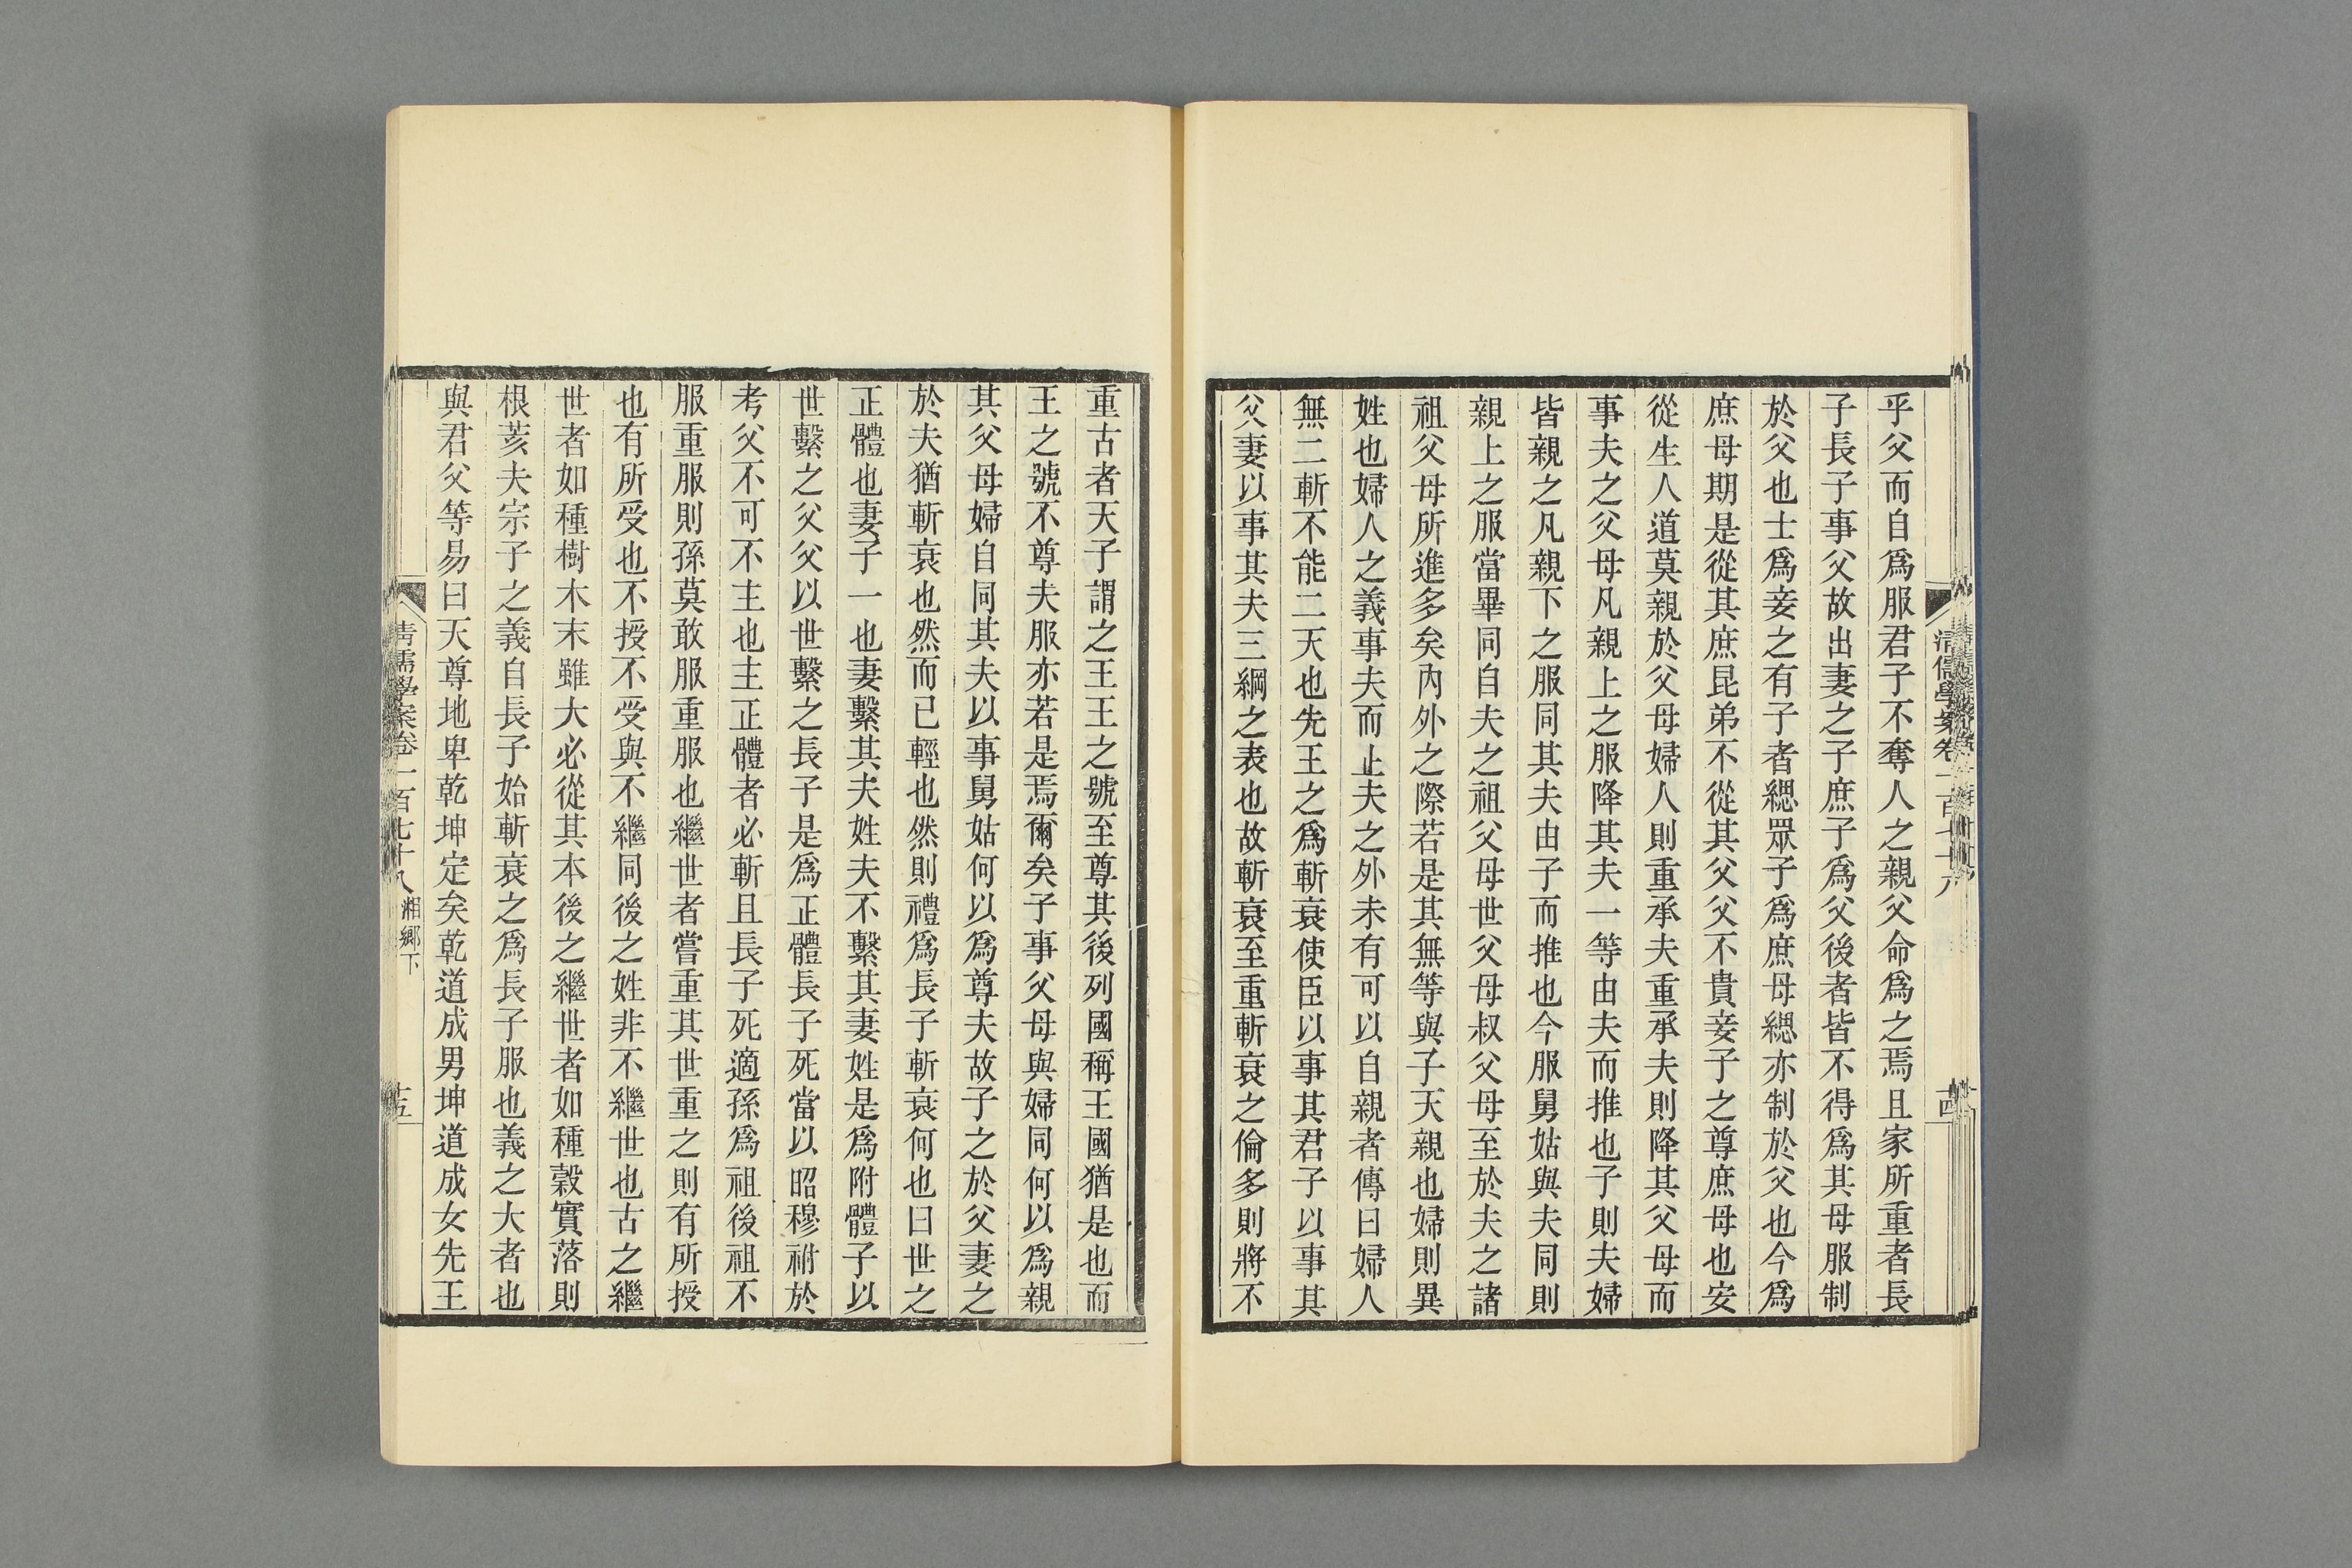 乎父而自爲服君子不奪人之親父命爲之焉且家所重者長
子長子事父故出妻之子庶子爲父後者皆不得爲其母服制
於父也士爲妾之有子者緦眾子爲庶母緦亦制於父也今爲
庶母期是從其庶昆弟不從其父父不貴妾子之尊庶母也安
從生人道莫親於父母婦人則重承夫重承夫則降其父母而
事夫之父母凡親上之服降其夫一等由夫而推也子則夫婦
皆親之凡親下之服同其夫由子而推也今服舅姑與夫同則
親上之服當畢同自夫之祖父母世父母叔父母至於夫之諸
祖父母所進多矣內外之際若是其無等與子天親也婦則異
姓也婦人之義事夫而止夫之外未有可以自親者傳曰婦人
無二斬不能二天也先王之爲斬衰使臣以事其君子以事其
父妻以事其夫三綱之表也故斬衰至重斬衰之倫多則將不
重古者天子謂之王王之號至尊其後列國稱王國猶是也而
王之號不尊夫服亦若是焉爾矣子事父母與婦同何以爲親
其父母婦自同其夫以事舅姑何以爲尊夫故子之於父妻之
於夫猶斬衰也然而已輕也然則禮爲長子斬衰何也曰世之
正體也妻子一也妻繫其夫姓夫不繫其妻姓是爲附體子以
世繫之父父以世繫之長子是爲正體長子死當以昭穆祔於
考父不可不主也主正體者必斬且長子死適孫爲祖後祖不
服重服則孫莫敢服重服也繼世者嘗重其世重之則有所授
也有所受也不授不受與不繼同後之姓非不繼世也古之繼
世者如種樹木末雖大必從其本後之繼世者如種穀實落則
根荄夫宗子之義自長子始斬衰之爲長子服也義之大者也
與君父等易曰天尊地卑乾坤定矣乾道成男坤道成女先王
清儒學案卷一百七十八 湘鄉下 十五